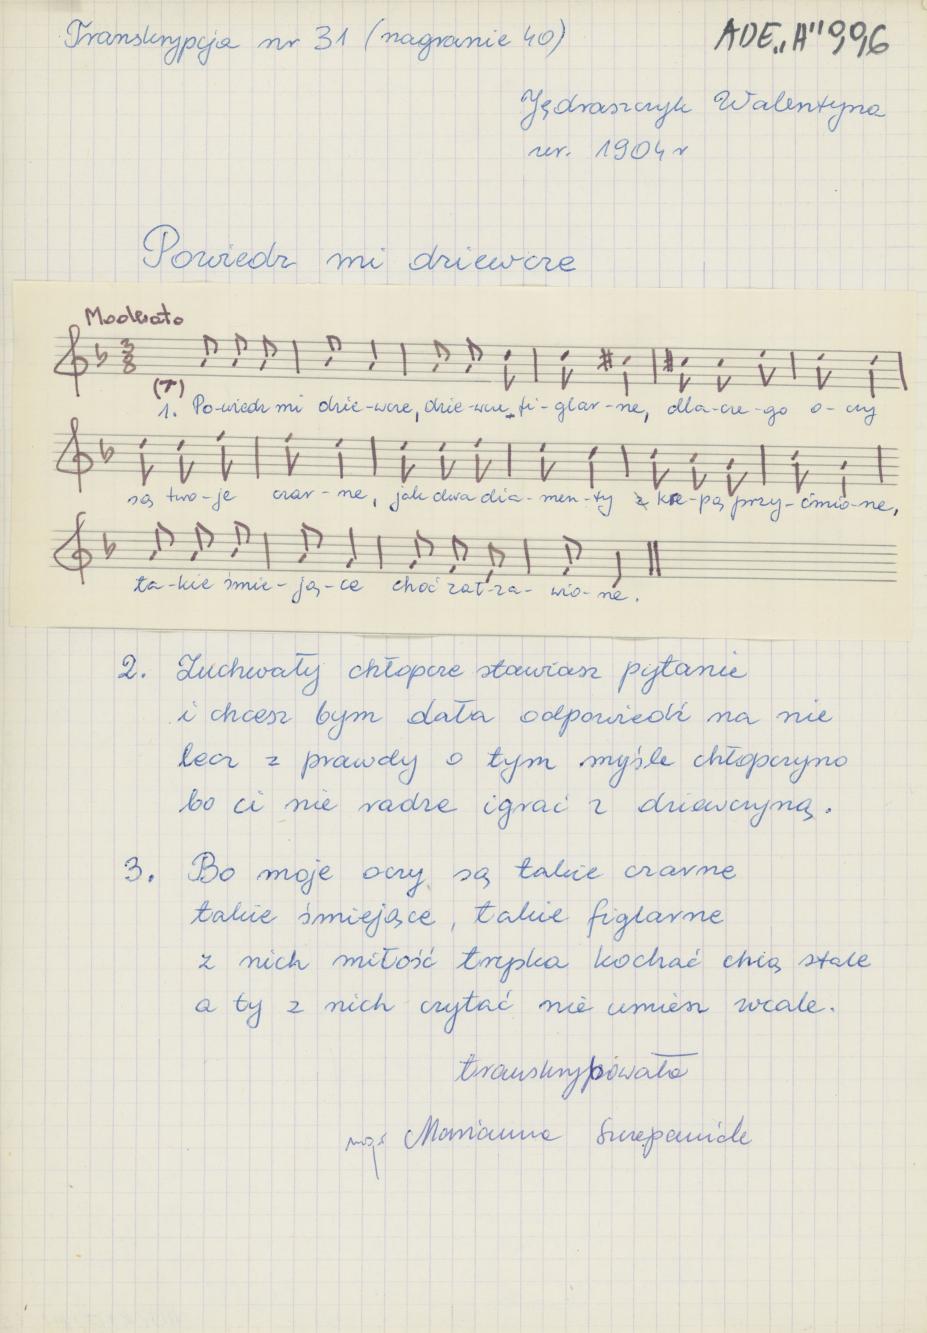 Transkrypcja nr 31 (nagranie 40)
ADE„A" 996
Jędraszczyk Walentyna
ur. 1904 r
Powiedz mi dziewcze
Moderato
3
8
(7)
1. Po-wiedz mi dzie-wcze, dzie-wcze fi-glar-ne, dla-cze-go o-czy
są two-je czar-ne, jak dwa dia-men-ty z krepą przy-ćmio-ne,
ta-kie śmie-ją-ce choć zał-za-wio-ne.
2. Zuchwały chłopcze stawiasz pytanie
i chcesz bym dała odpowiedź na nie
lecz z prawdy o tym myśle chłopczyno
bo ci nie radze igrać z dziewczyną.
3. Bo moje oczy są takie czarne
takie śmiejące, takie figlarne
z nich miłość tryska kochać chcą stale
a ty z nich czytać nie umiesz wcale.
transkrybowała
mgr Marianna Szczepaniak